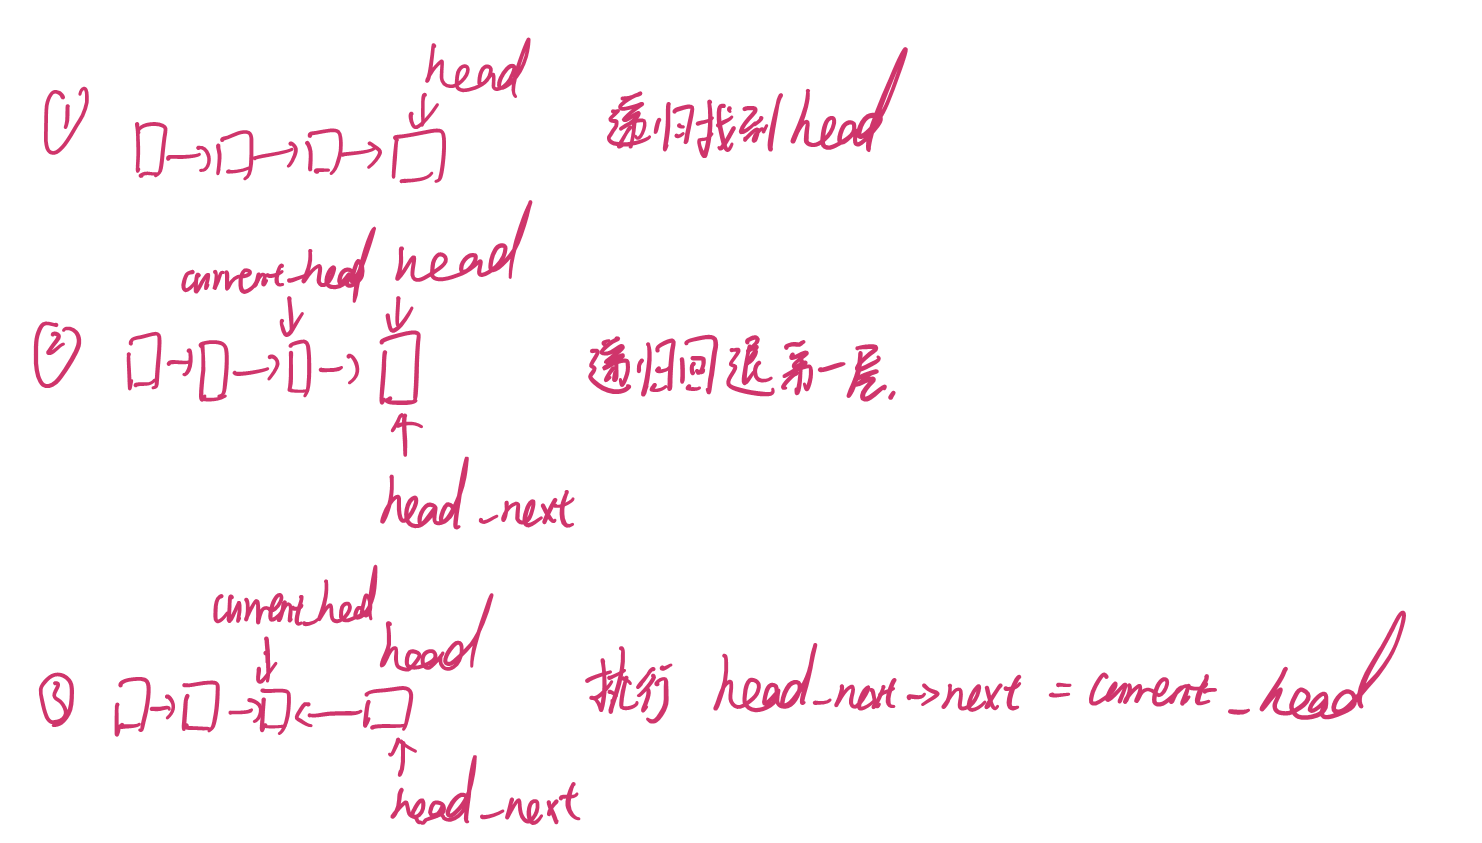 head
① 递归找到head
current_head head
② 递归回退第一层.
head_next
current_head
head
③ 执行 head_next->next = current_head
head_next